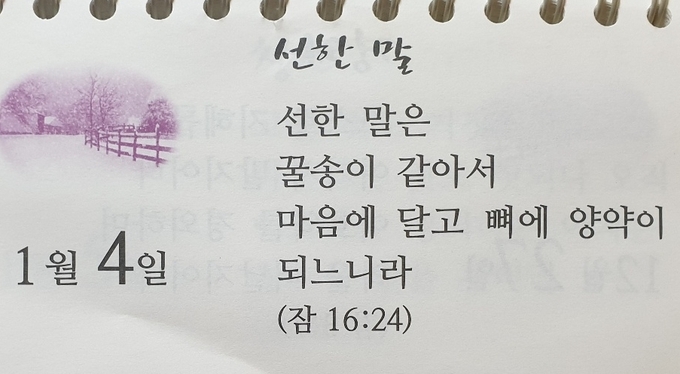 선한 말
선한 말은
꿀송이 같아서
마음에 달고 뼈에 양약이
되느니라
(잠 16:24)
1월 4일